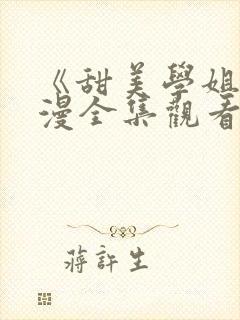 《甜美學姐
漫全集觀看
蔣許生